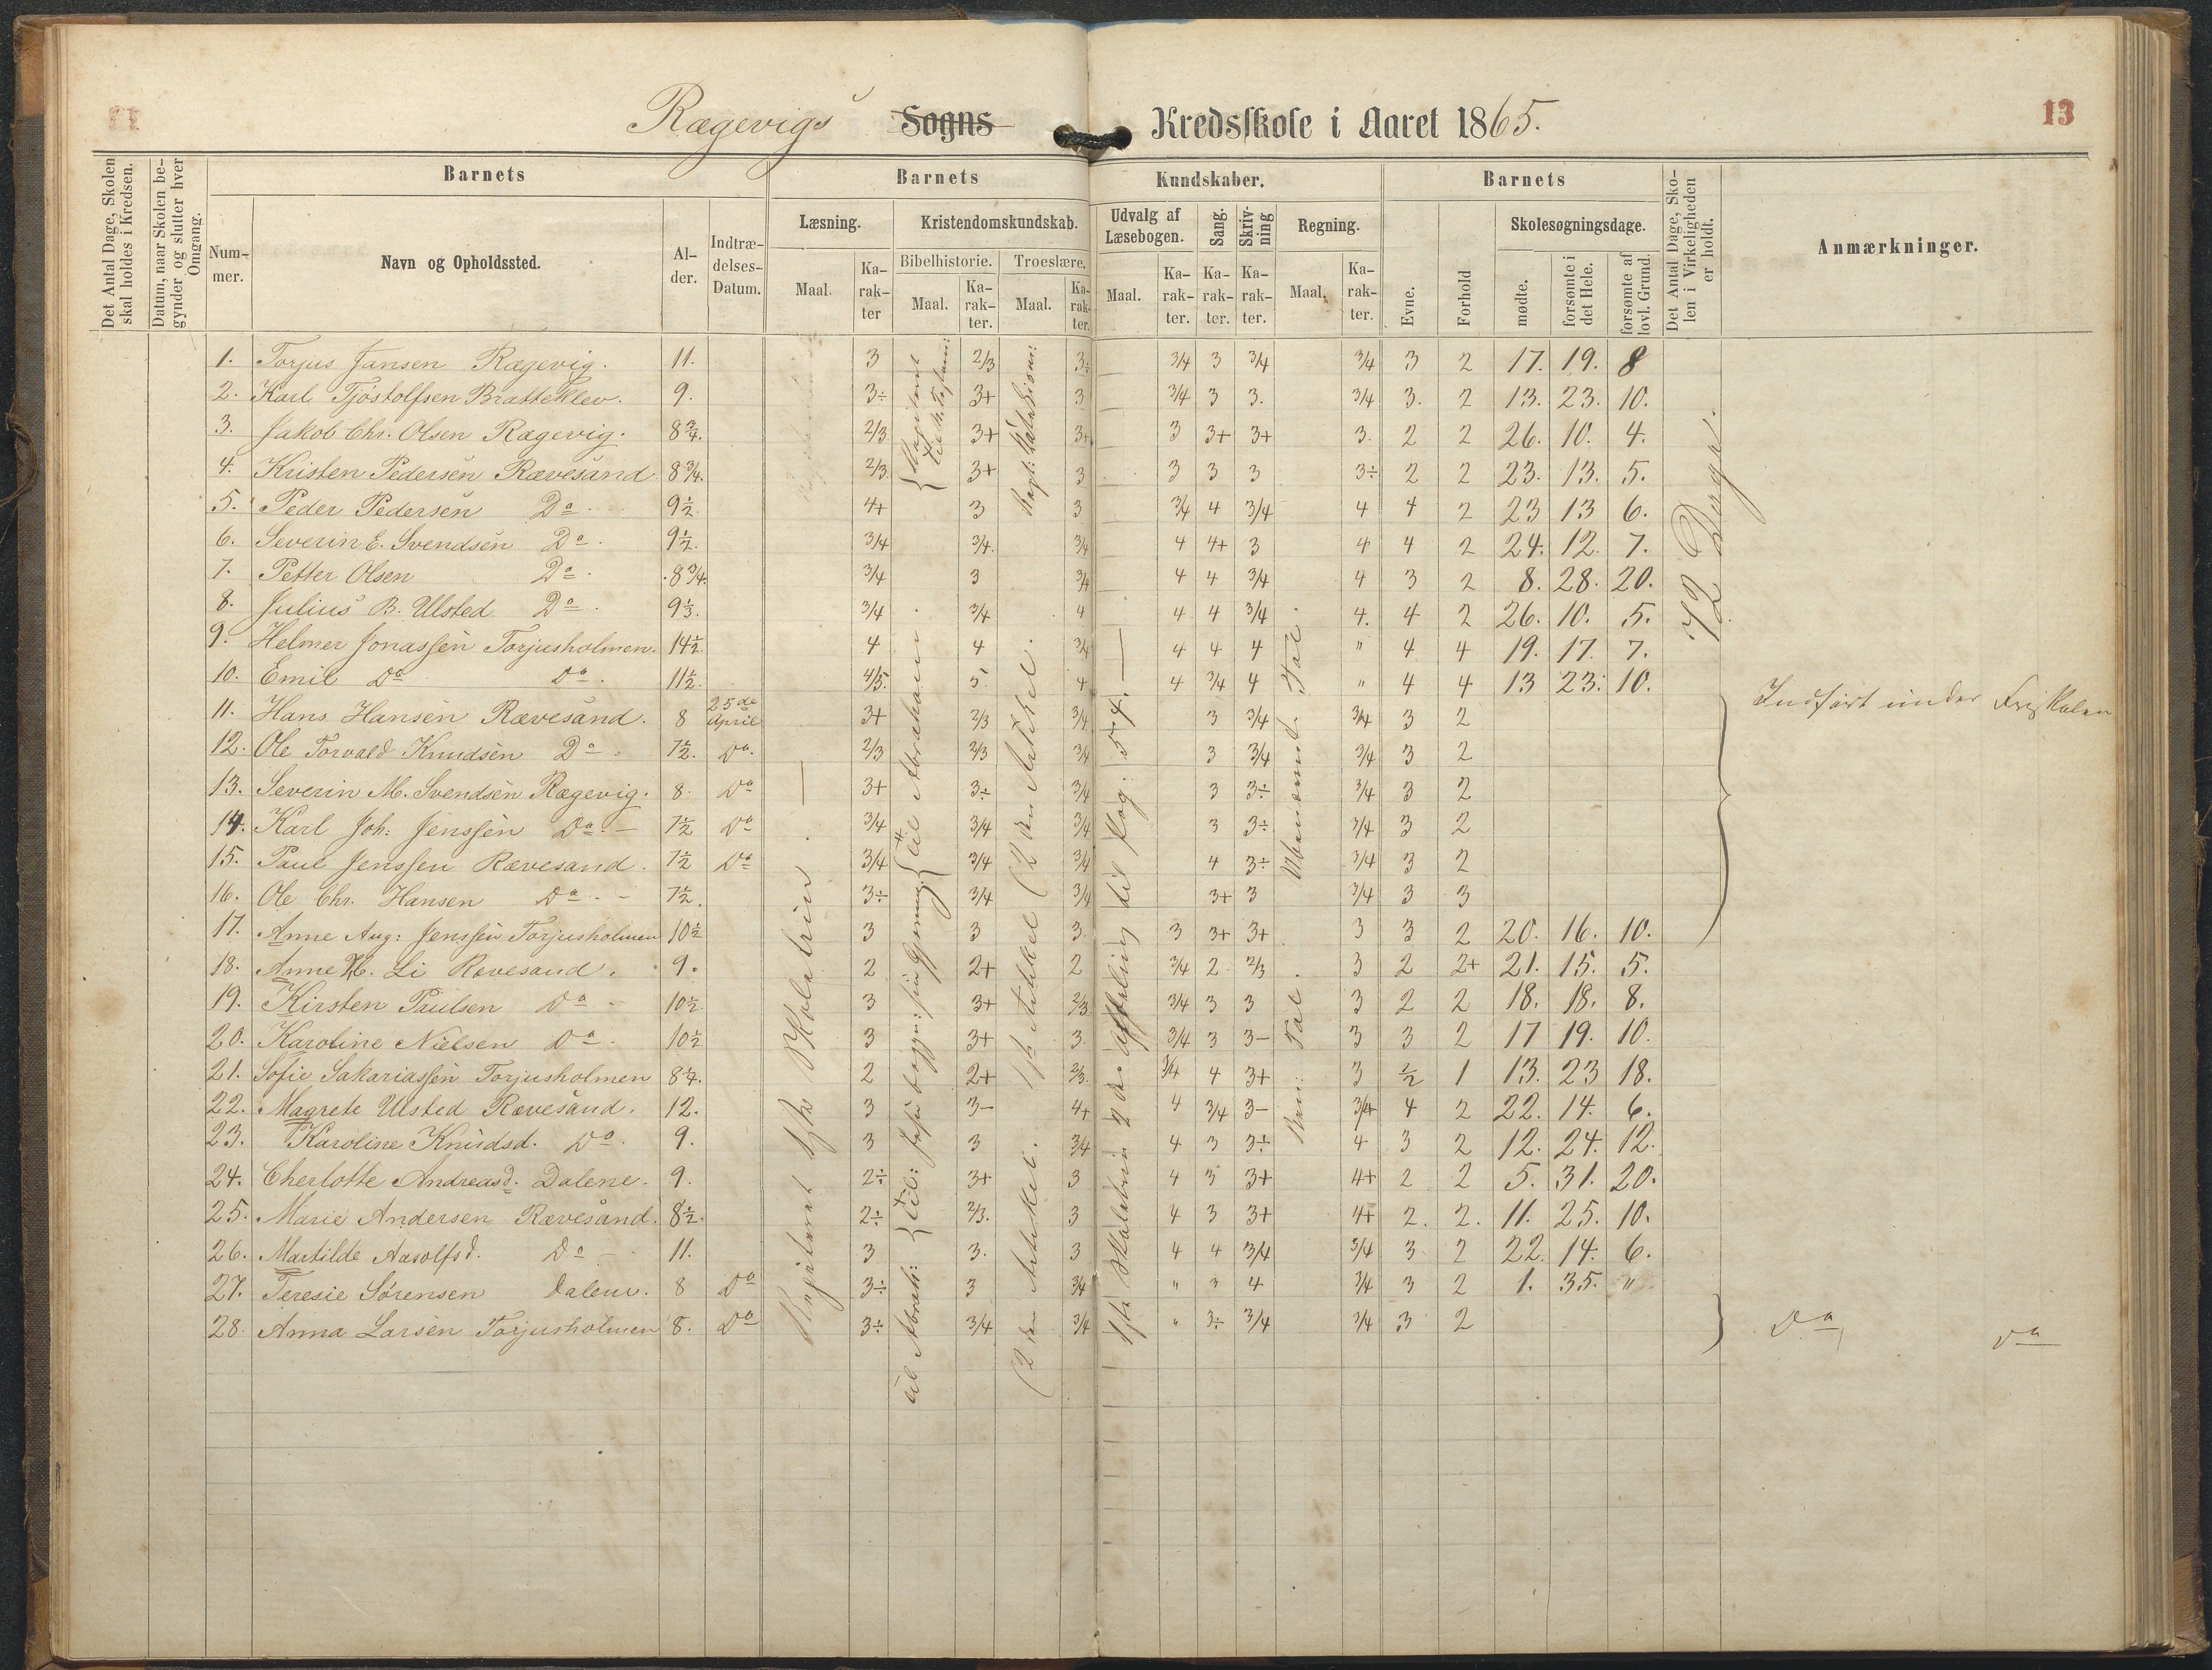 Rægevigs Sogns Kredsskole i Aaret 1865.
13
Det Antal Dage, Skolen skal holdes i Kredsen.
Datum, naar Skolen begynder og slutter hver Omgang.
Barnets
Nummer.
Navn og Opholdssted.
Alder.
Indtrædelses-Datum.
Barnets Kundskaber.
Læsning.
Maal.
Karakter
Kristendomskundskab.
Bibelhistorie.
Maal.
Karakter.
Troeslære.
Maal.
Karakter.
Udvalg af Læsebogen.
Maal.
Karakter.
Sang.
Karakter.
Skrivning
Karakter.
Regning.
Maal.
Karakter.
Barnets
Evne.
Forhold
Skolesøgningsdage.
mødte.
forsømte i det Hele.
forsømte af lovl. Grund.
Det Antal Dage, Skolen i Virkeligheden er holdt.
Anmærkninger.
1. Torjus Jansen Rægevig. 11. 3 2/3 3÷ 3/4 3 3/4 3/4 3 2 17. 19. 8
2. Karl Tjøstolfsen Bratteklev. 9. 3÷ 3+ 3 3/4 3 3. 3/4 3. 2 13. 23. 10.
3. Jakob Chr. Olsen Rægevig. 8 3/4. 2/3 3+ 3+ 3 3+ 3+ 3. 2 2 26. 10. 4.
4. Kristen Pedersen Rævesand 8 3/4. 2/3. 3+ 3 3 3 3 3÷ 2 2 23. 13. 5.
5. Peder Pedersen Do. 9 1/2. 4+ 3 3 3/4 4 3/4 4 4 2 23 13 6.
6. Severin E. Svendsen Do. 9 1/2. 3/4 3/4. 3/4 4 4+ 3 4 4 2 24. 12. 7.
7. Petter Olsen Do. 8 3/4. 3/4 3 3/4 4 4 3/4 4 3 2 8. 28. 20.
8. Julius B. Ulsted Do. 9 1/3. 3/4 3/4 4 4 4 3/4 4. 4 2 26. 10. 5.
9. Helmer Jonassen Torjusholmen. 14 1/2. 4 4 3/4 4 4 4 " 4 4 19. 17. 7.
10. Emil Do Do. 11 1/2. 4/5. 5. 4 4 3/4 4 " 4 4 13 23. 10.
11. Hans Hansen Rævesand. 8 25de April 3+ 2/3 3/4 3 3/4 3/4 3 2
Indført under Friskolen
12. Ole Torvald Knudsen Do. 7 1/2. Do. 2/3 2/3 3/4 3 3/4 3/4 3 2
13. Severin M. Svendsen Rægevig. 8. Do 3+ 3÷ 3/4 3 3÷ 3/4 3 2
14. Karl Joh: Jenssen Do. 7 1/2 Do 3/4 3/4 3/4 3 3÷ 3/4 3 2
15. Paul Jenssen Rævesand. 7 1/2 Do 3/4 3/4 3/4 4 3÷ 3/4 3 2
16. Ole Chr. Hansen Do. 7 1/2. 3÷ 3/4 3/4 3+ 3 3/4 3 3
17. Anne Aug: Jenssen Torjusholmen 10 1/2 3 3 3. 3 3+ 3+ 3 3 2 20. 16. 10.
18. Anne H. Li Rævesand. 9. 2 2+ 2 3/4 2 2/3 3 2 2+ 21. 15. 5.
19. Kirsten Paulsen Do 10 1/2 3 3+ 2/3 3/4 3 3 3 2 2 18. 18. 8.
20. Karoline Nielsen Do. 10 1/2 3 3+ 3. 3/4 3 3- 3 3 2 17 19. 10.
21. Sofie Sakariassen Torjusholmen 8 1/4. 2 2+ 2/3. 3/4 4 3+ 3 1/2 1 13. 23 18.
22. Magrete Ulsted Rævesand. 12. 3 3- 4+ 4 3/4 3- 3/4 4 2 22. 14. 6.
23. Karoline Knudsd. Do. 9. 3 3 3/4 4 3 3÷ 4 3 2 12. 24. 12.
24. Cherlotte Andreasd. Dalene. 9. 2÷ 3+ 3 4 3 3+ 4+ 2 2 5. 31. 20.
25. Marie Andersen Rævesand. 8 1/2. 2÷ 2/3. 3 4 3 3+ 4+ 2. 2. 11. 25. 10.
26. Martilde Aasolfsd. Do 11. 3 3. 3 4 4 3/4 3/4 3 2 22. 14. 6.
27. Teresie Sørensen Dalene. 8 Do 3÷ 3 3/4 " 3 4 3/4 3 2 1. 35. "
28. Anna Larsen Torjusholmen 8. Do 3÷ 3/4 3/4 " 3÷ 3/4 3/4 3 2
Do Do
Registeret 1ste Skoletrin.
til Abraham
1ste Artikel (2den Artikel.
(2den Artikel.
1ste Skoletrin 2den Afdeling til Pag: 54.
Ubenævnt Tal.
Ben: Tal.
72 Dage.